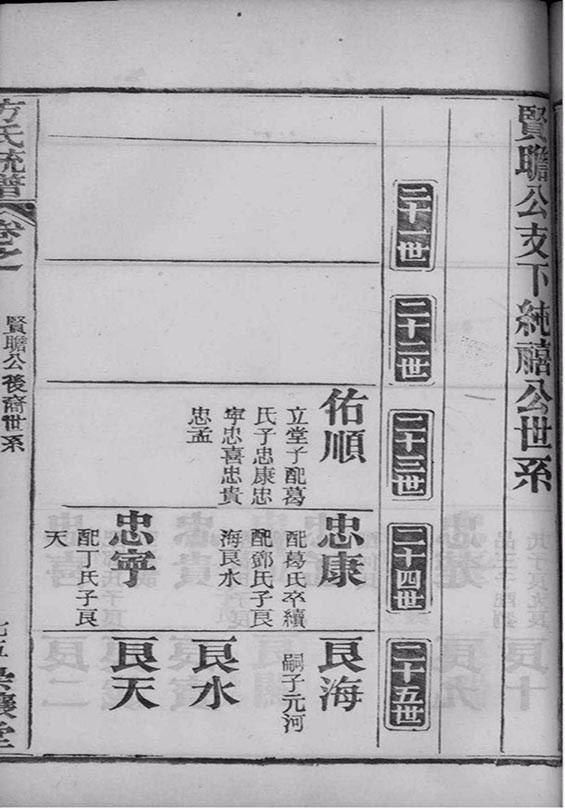 賢瞻公支下純禧公世系
二十一世
二十二世
二十三世
二十四世
二十五世
佑順
立堂子配葛
氏子忠康忠
寕忠喜忠貴
忠孟
忠康
配葛氏卒續
配鄧氏子良
海良水
忠寕
配丁氏子良
天
良海
嗣子元河
良水
良天
方氏統譜
卷之一
賢瞻公後裔世系